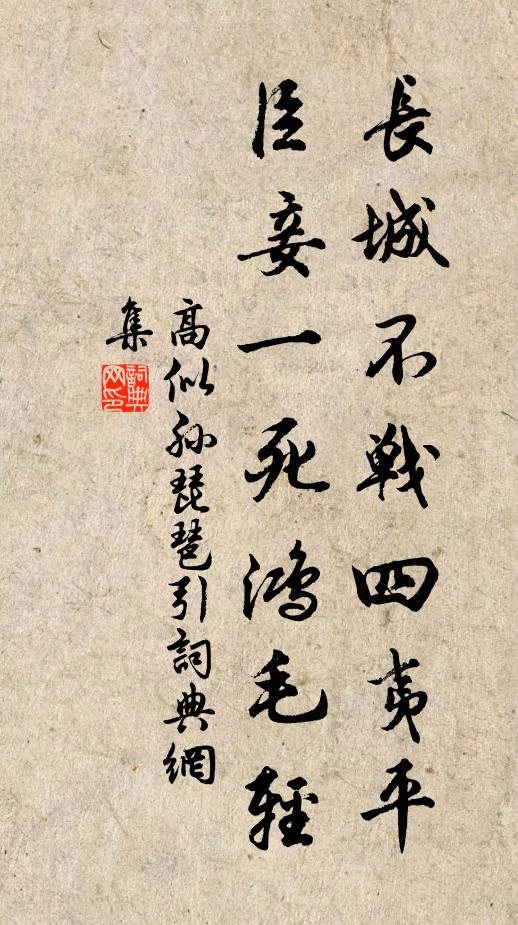 長城不戦四夷平
臣妾一死鴻毛輕
高似孙琵琶引詞典網
集
詞典
网印